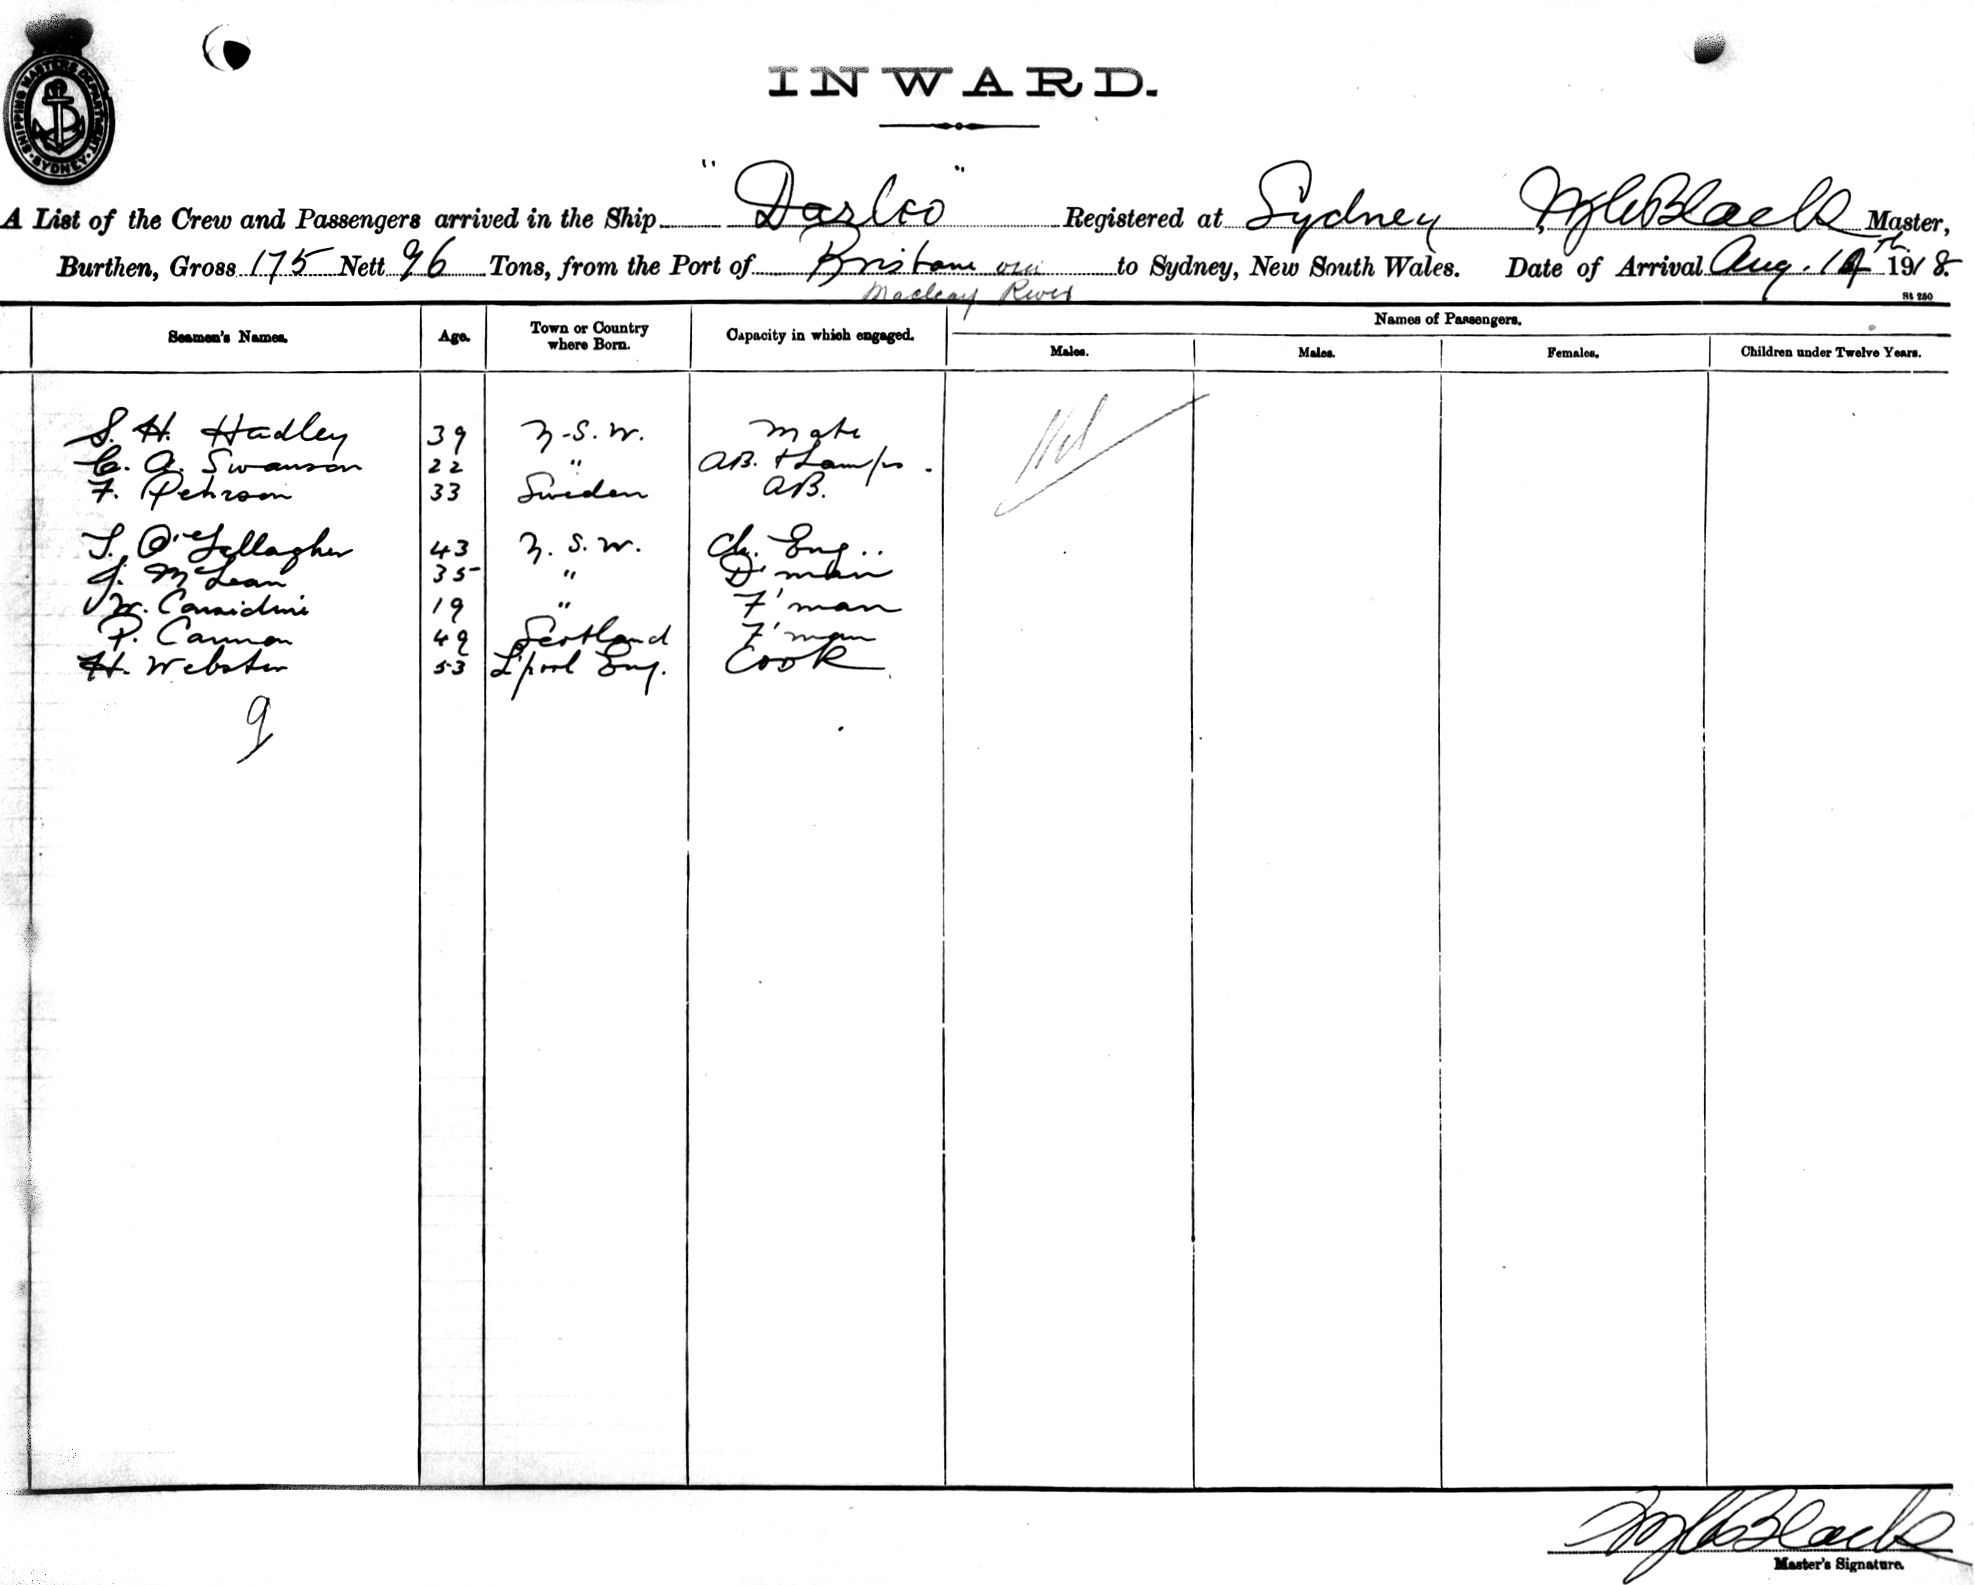 SHIPPING MASTERS DEPARTMENT SYDNEY
INWARD.
A List of the Crew and Passengers arrived in the Ship "Dasleo" Registered at Sydney Black Master,
Burthen, Gross 175 Nett 96 Tons, from the Port of Brisbane via to Sydney, New South Wales. Date of Arrival Aug. 14th 1918.
Macleay River
St 250
Seamen's Names. Age. Town or Country where Born. Capacity in which engaged. Names of Passengers.
Males. Males. Females. Children under Twelve Years.
S. H. Hadley 39 N.S.W. Mate Nil
C. A. Swanson 22 " AB. & Lamps.
F. Pehrson 33 Sweden AB.
T. O'Gallagher 43 N.S.W. Ch. Eng..
J. McLean 35 " D'man
W. Considine 19 " F'man
P. Cannon 49 Scotland F'man
H. Webster 53 L'pool Eng. Cook
9
Black
Master's Signature.